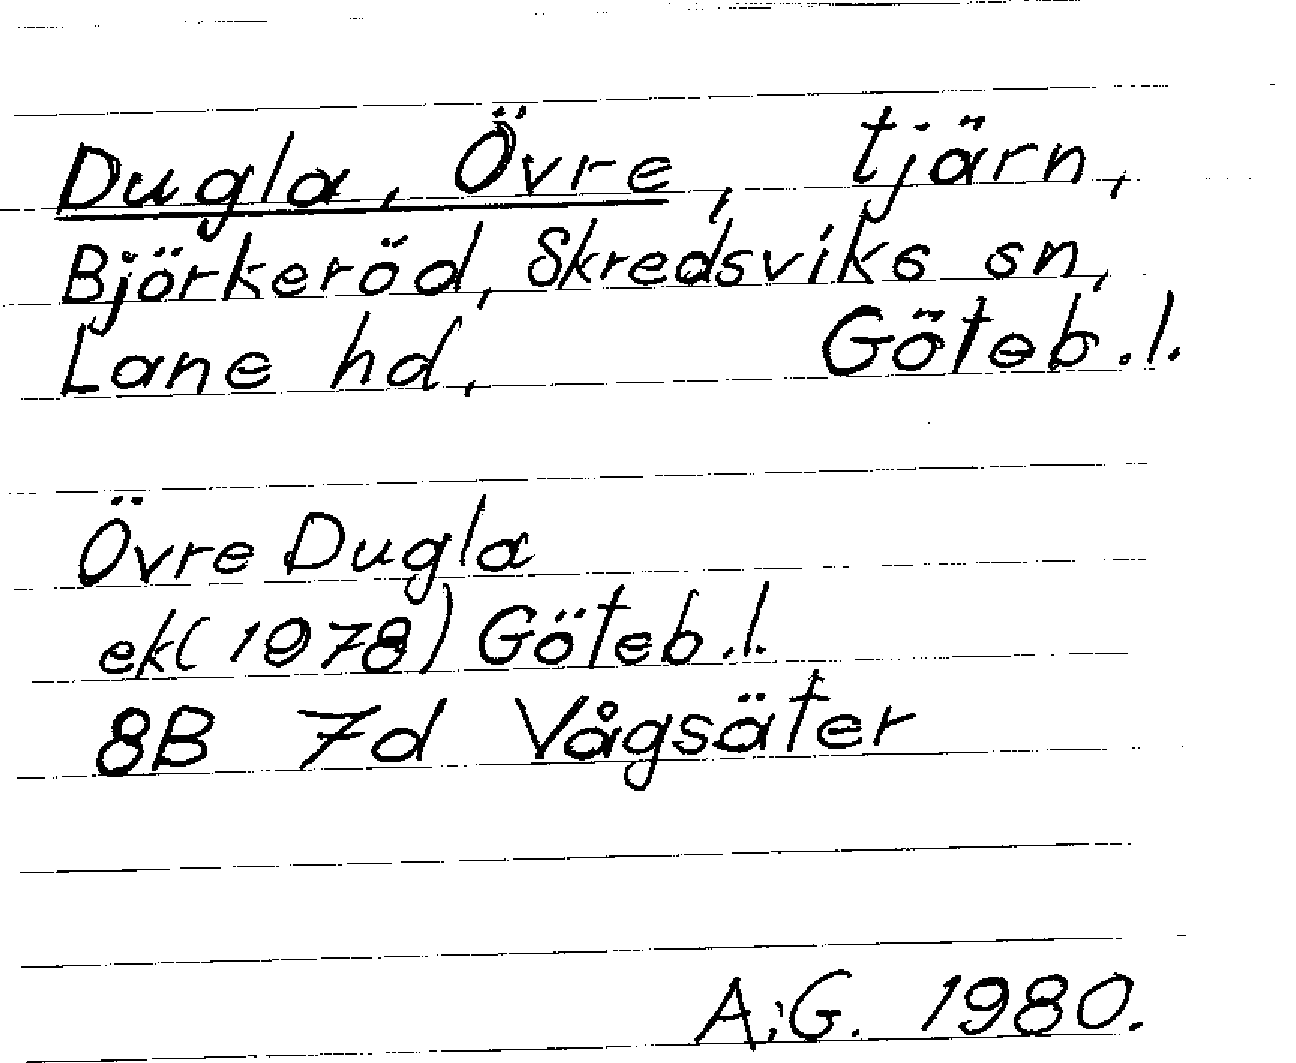 Dugla, Övre, tjärn,
Björkeröd, Skredsviks sn,
Lane hd, Göteb.l.
Övre Dugla
ek(1978) Göteb.l.
8B 7d Vågsäter
A.G. 1980.